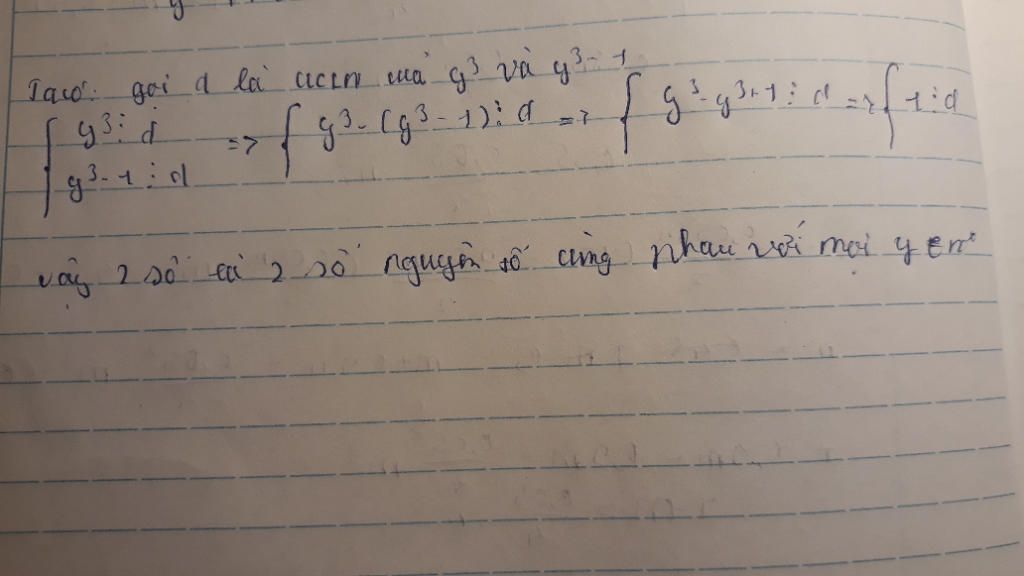 Ta có: gọi d là ƯCLN của y³ và y³ - 1
{ y³ ⋮ d => { y³ - (y³ - 1) ⋮ d => { y³ - y³ + 1 ⋮ d => { 1 ⋮ d
y³ - 1 ⋮ d
vậy 2 số là 2 số nguyên tố cùng nhau với mọi y ∈ n*